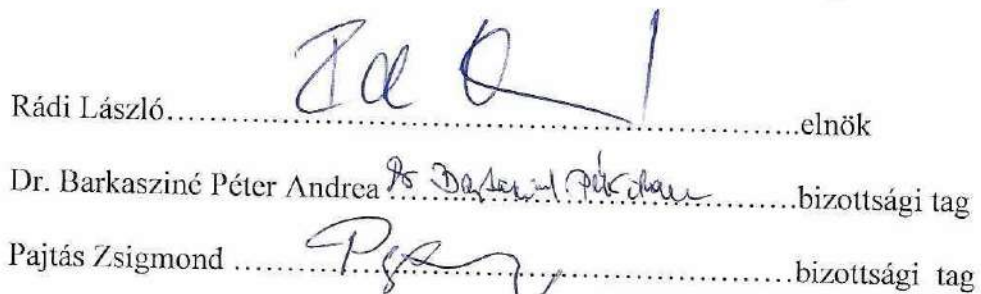 Rádi László..............................elnök
Dr. Barkasziné Péter Andrea ..............................bizottsági tag
Pajtás Zsigmond ..............................bizottsági tag